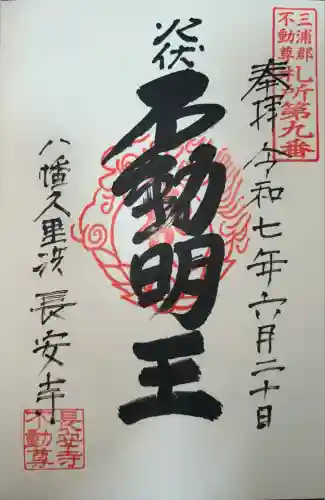 三浦郡
不動尊
札所第九番
奉拝 令和七年六月二十日
火伏
不動明王
八幡久里浜 長安寺
長安寺
不動尊